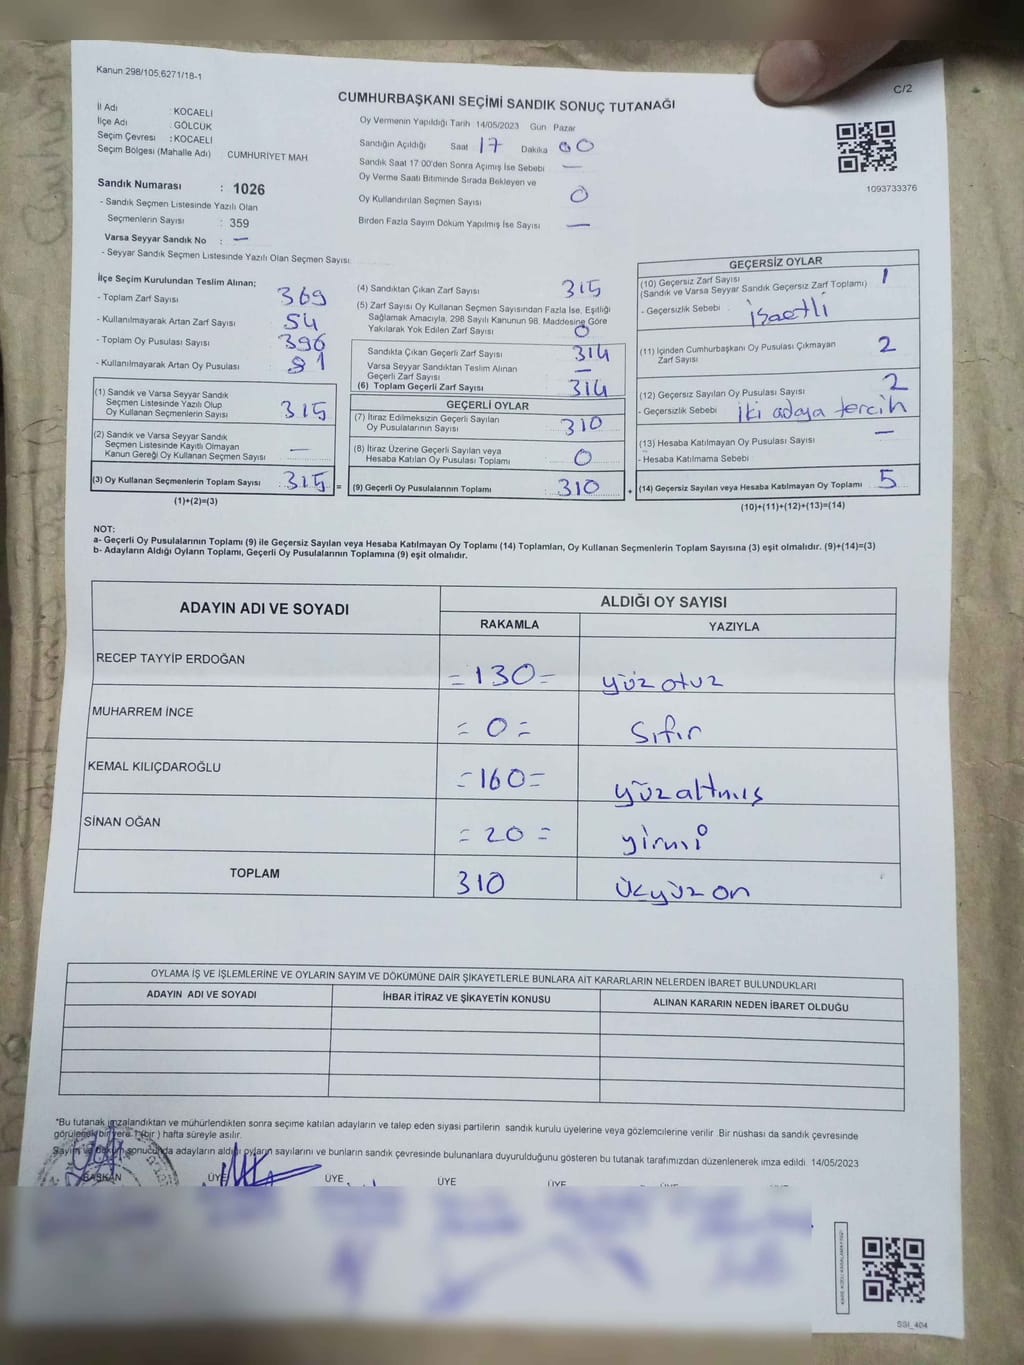 Kanun 298/105,6271/18-1
C/2
CUMHURBAŞKANI SEÇİMİ SANDIK SONUÇ TUTANAĞI
İl Adı : KOCAELİ
İlçe Adı : GÖLCÜK
Seçim Çevresi : KOCAELİ
Seçim Bölgesi (Mahalle Adı) CUMHURİYET MAH
Sandık Numarası : 1026
- Sandık Seçmen Listesinde Yazılı Olan
Seçmenlerin Sayısı : 359
Varsa Seyyar Sandık No : —
- Seyyar Sandık Seçmen Listesinde Yazılı Olan Seçmen Sayısı
Oy Vermenin Yapıldığı Tarih 14/05/2023 Gün Pazar
Sandığın Açıldığı Saat 17 Dakika 00
Sandık Saat 17 00'den Sonra Açımış İse Sebebi —
Oy Verme Saati Bitiminde Sırada Bekleyen ve
Oy Kullandırılan Seçmen Sayısı 0
Birden Fazla Sayım Döküm Yapılmış İse Sayısı —
1093733376
İlçe Seçim Kurulundan Teslim Alınan;
- Toplam Zarf Sayısı 369
- Kullanılmayarak Artan Zarf Sayısı 54
- Toplam Oy Pusulası Sayısı 396
- Kullanılmayarak Artan Oy Pusulası 81
(1) Sandık ve Varsa Seyyar Sandık
Seçmen Listesinde Yazılı Olup
Oy Kullanan Seçmenlerin Sayısı 315
(2) Sandık ve Varsa Seyyar Sandık
Seçmen Listesinde Kayıtlı Olmayan
Kanun Gereği Oy Kullanan Seçmen Sayısı —
(3) Oy Kullanan Seçmenlerin Toplam Sayısı 315 =
(1)+(2)=(3)
(4) Sandıktan Çıkan Zarf Sayısı 315
(5) Zarf Sayısı Oy Kullanan Seçmen Sayısından Fazla İse, Eşitliği
Sağlamak Amacıyla, 298 Sayılı Kanunun 98. Maddesine Göre
Yakılarak Yok Edilen Zarf Sayısı 0
Sandıkta Çıkan Geçerli Zarf Sayısı 314
Varsa Seyyar Sandıktan Teslim Alınan
Geçerli Zarf Sayısı —
(6) Toplam Geçerli Zarf Sayısı 314
GEÇERLİ OYLAR
(7) İtiraz Edilmeksizin Geçerli Sayılan
Oy Pusulalarının Sayısı 310
(8) İtiraz Üzerine Geçerli Sayılan veya
Hesaba Katılan Oy Pusulası Toplamı 0
(9) Geçerli Oy Pusulalarının Toplamı 310 +
GEÇERSİZ OYLAR
(10) Geçersiz Zarf Sayısı 1
(Sandık ve Varsa Seyyar Sandık Geçersiz Zarf Toplamı)
- Geçersizlik Sebebi işaetli
(11) İçinden Cumhurbaşkanı Oy Pusulası Çıkmayan
Zarf Sayısı 2
(12) Geçersiz Sayılan Oy Pusulası Sayısı 2
- Geçersizlik Sebebi iki adaya tercih
(13) Hesaba Katılmayan Oy Pusulası Sayısı —
- Hesaba Katılmama Sebebi
(14) Geçersiz Sayılan veya Hesaba Katılmayan Oy Toplamı 5
(10)+(11)+(12)+(13)=(14)
NOT:
a- Geçerli Oy Pusulalarının Toplamı (9) ile Geçersiz Sayılan veya Hesaba Katılmayan Oy Toplamı (14) Toplamları, Oy Kullanan Seçmenlerin Toplam Sayısına (3) eşit olmalıdır. (9)+(14)=(3)
b- Adayların Aldığı Oyların Toplamı, Geçerli Oy Pusulalarının Toplamına (9) eşit olmalıdır.
ADAYIN ADI VE SOYADI ALDIĞI OY SAYISI
RAKAMLA YAZIYLA
RECEP TAYYİP ERDOĞAN = 130 = yüz otuz
MUHARREM İNCE = 0 = sıfır
KEMAL KILIÇDAROĞLU = 160 = yüz altmış
SİNAN OĞAN = 20 = yirmi
TOPLAM 310 üçyüz on
OYLAMA İŞ VE İŞLEMLERİNE VE OYLARIN SAYIM VE DÖKÜMÜNE DAİR ŞİKAYETLERLE BUNLARA AİT KARARLARIN NELERDEN İBARET BULUNDUKLARI
ADAYIN ADI VE SOYADI İHBAR İTİRAZ VE ŞİKAYETİN KONUSU ALINAN KARARIN NEDEN İBARET OLDUĞU
*Bu tutanak imzalandıktan ve mühürlendikten sonra seçime katılan adayların ve talep eden siyasi partilerin sandık kurulu üyelerine veya gözlemcilerine verilir .Bir nüshası da sandık çevresinde
görülebilir bir yere 1 (bir ) hafta süreyle asılır.
Sayım ve döküm sonucunda adayların aldığı oyların sayılarını ve bunların sandık çevresinde bulunanlara duyurulduğunu gösteren bu tutanak tarafımızdan düzenlenerek imza edildi. 14/05/2023
BAŞKAN ÜYE ÜYE ÜYE ÜYE
SSI_404